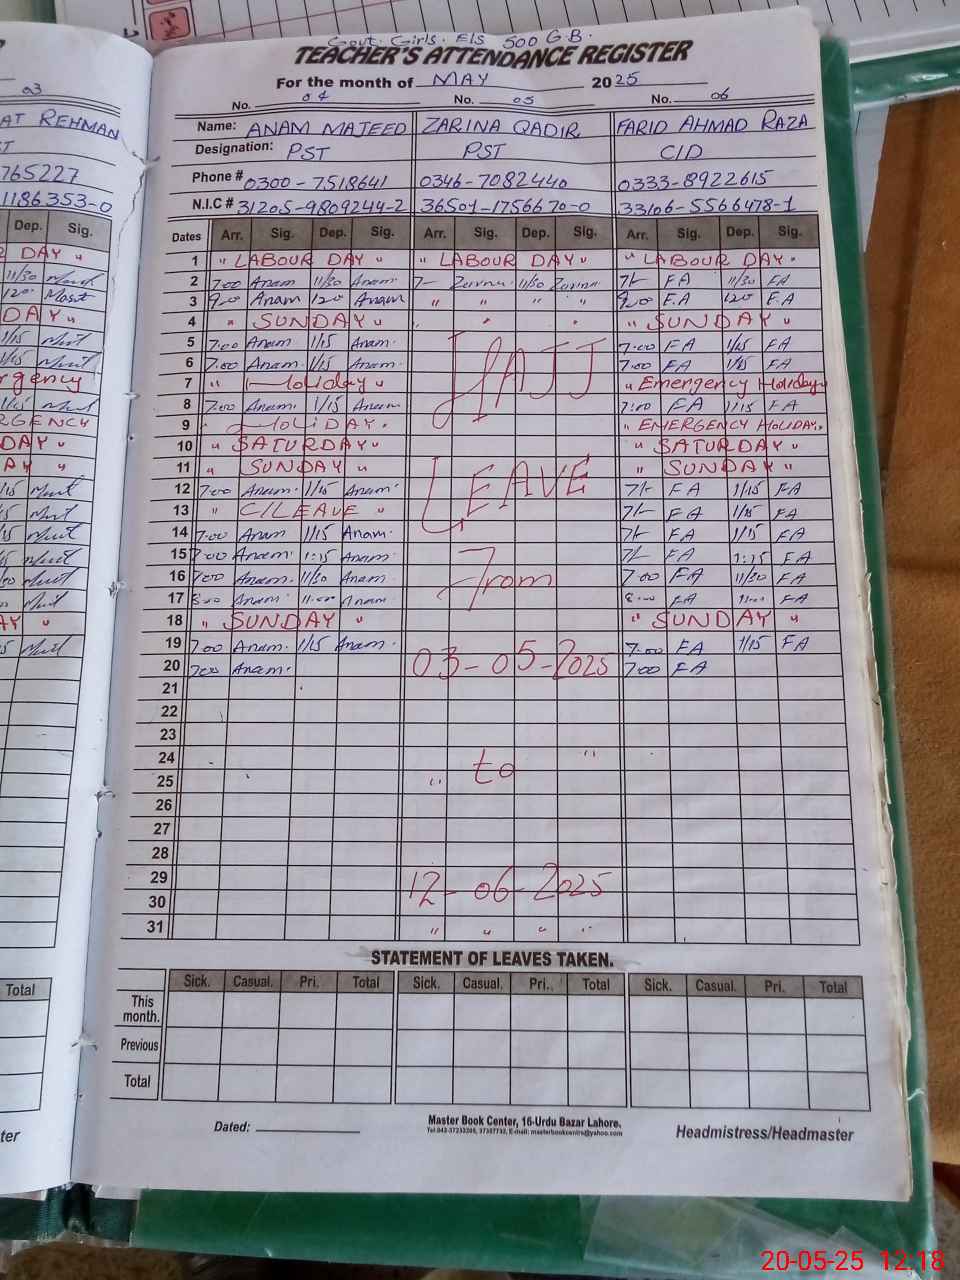 Govt. Girls. E/S 500 G.B.
TEACHER'S ATTENDANCE REGISTER
For the month of MAY 2025
03
No. 04 No. 05 No. 06
AT REHMAN
Name: ANAM MAJEED ZARINA QADIR FARID AHMAD RAZA
Designation: PST PST C/D
765227
Phone # 0300-7518641 0346-7082440 0333-8922615
1186353-0
N.I.C # 31205-9809244-2 36501-1756670-0 33106-5566478-1
Dep. Sig.
Dates Arr. Sig. Dep. Sig. Arr. Sig. Dep. Sig. Arr. Sig. Dep. Sig.
1 " LABOUR DAY " " LABOUR DAY " " LABOUR DAY "
2 7.00 Anam 11/30 Anam 7- Zarina 11/30 Zarina 7/- FA 11/30 FA
3 9.00 Anam 120 Anam " " " " 9.00 F.A 120 F.A
4 " SUNDAY " " SUNDAY "
5 7.00 Anam. 1/15 Anam. 7.00 FA 1/15 FA
6 7.00 Anam. 1/15 Anam. 7.00 FA 1/15 FA
HAJJ
7 " Holiday " " Emergency Holiday"
8 7.00 Anam. 1/15 Anam. 7:00 FA 1/15 FA
9 Holiday " EMERGENCY HOLIDAY.
10 " SATURDAY " " SATURDAY "
11 " SUNDAY " " SUNDAY "
12 7.00 Anam. 1/15 Anam. LEAVE 7/- FA 1/15 FA
13 " C/LEAVE " 7/- FA 1/15 FA
14 7.00 Anam 1/15 Anam. 7/- FA 1/15 FA
15 7.00 Anam. 1:15 Anam. 7/- FA 1:15 FA
16 7.00 Anam. 11/30 Anam. From 7.00 FA 11/30 FA
17 8.00 Anam. 11.00 Anam. 8.00 FA 11.00 FA
18 " SUNDAY " " SUNDAY "
19 7.00 Anam. 1/15 Anam. 7.00 FA 1/15 FA
20 7.00 Anam. 03-05-2025 7.00 FA
21
22
23
24 "
25 " to
26
27
28
29 12-06-2025
30
31 " " " "
STATEMENT OF LEAVES TAKEN.
Total
Sick. Casual. Pri. Total Sick. Casual. Pri. Total Sick. Casual. Pri. Total
This month.
Previous
Total
Dated:
Master Book Center, 16-Urdu Bazar Lahore.
Headmistress/Headmaster
20-05-25 12:18